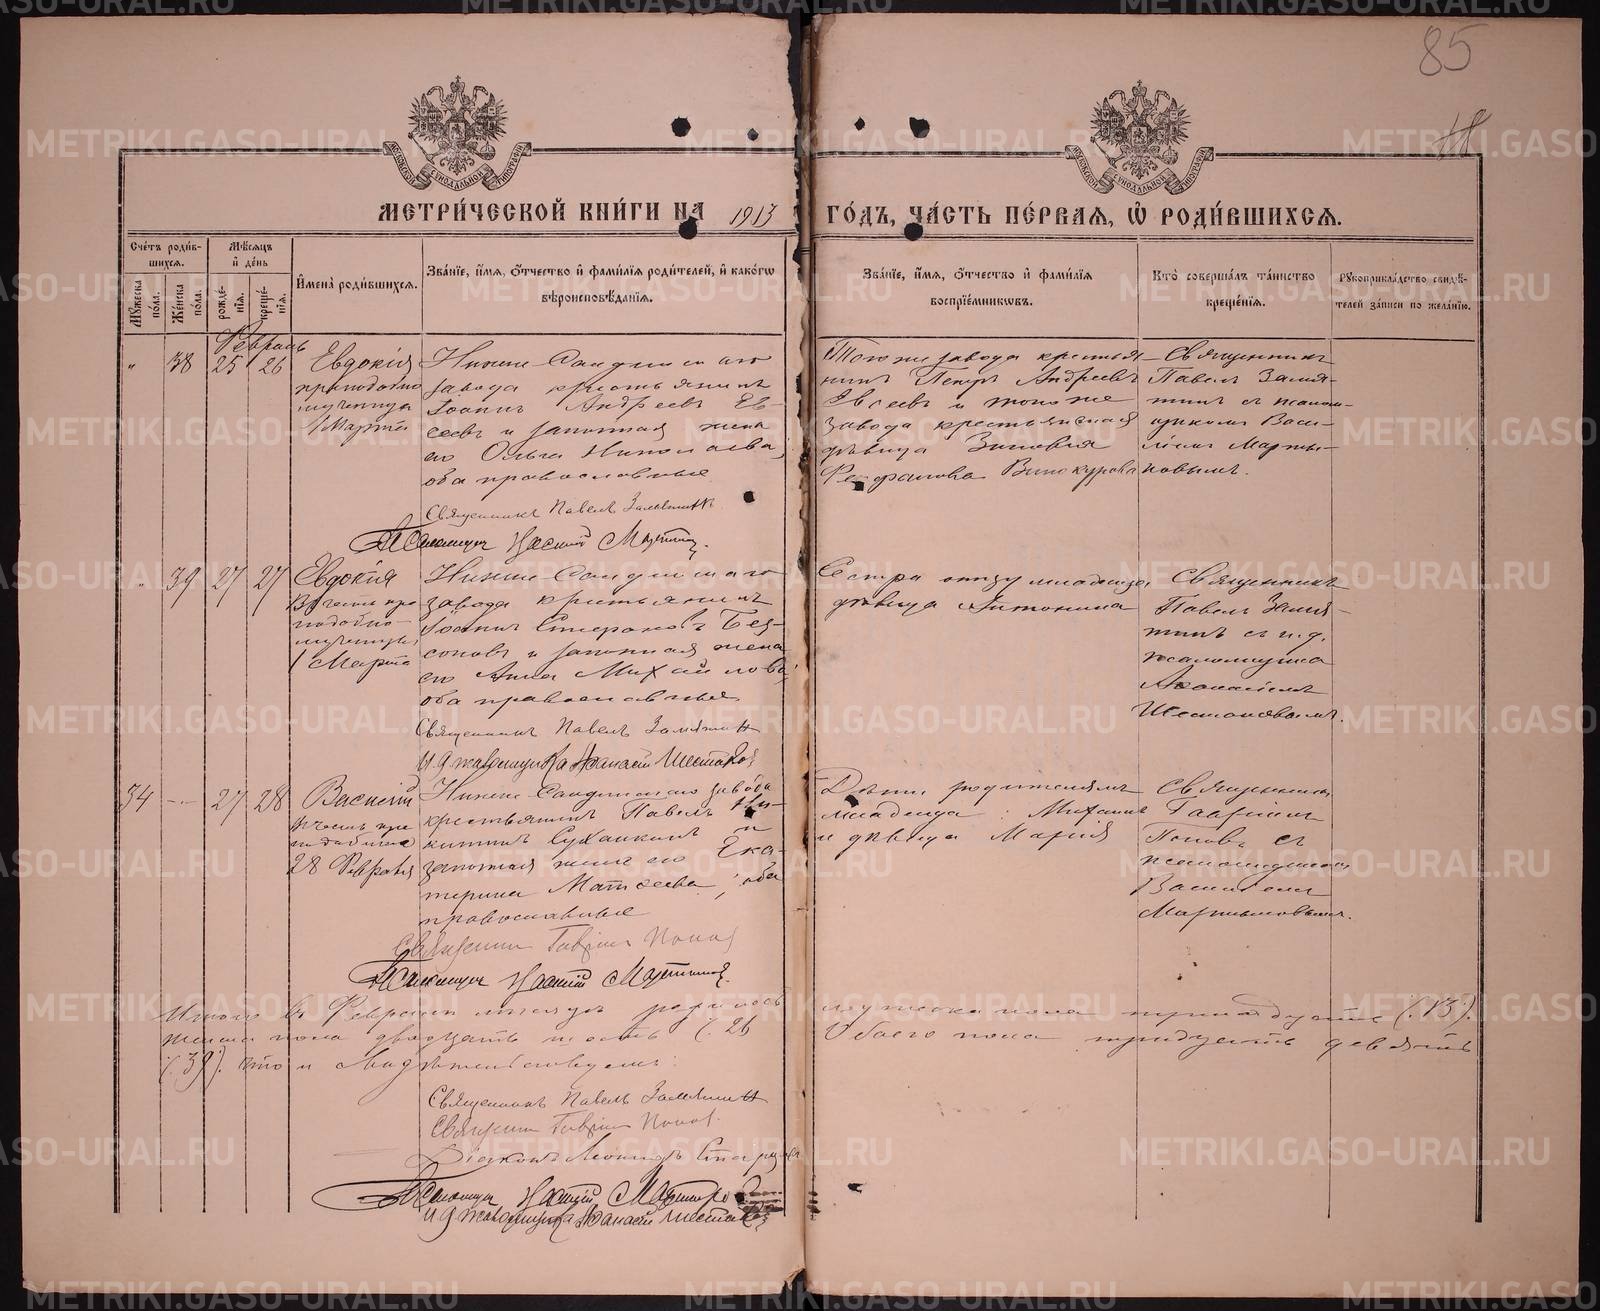 85
МЕТРИ́ЧЕСКОЙ КНИ́ГИ НА 1913 ГО́ДЪ, ЧА́СТЬ ПЕ́РВАЯ, Ѡ҆ РОДИ́ВШИХСЯ.
Сче́тъ роди́в-
шихся.
Мѣ́сяцъ
и҆ де́нь
Мꙋ́жеска
по́ла.
Же́нска
по́ла.
рожде-
нїя.
креще-
нїя.
И҆мена̀ роди́вшихся.
Зва́нїе, и҆́мя, ѻ҆́тчество и҆ фами́лїя роди́телей, и҆ како́гѡ
вѣроисповѣ́данїя.
Зва́нїе, и҆́мя, ѻ҆́тчество и҆ фами́лїя
воспрїе́мниковъ.
Кто̀ соверша́лъ та́инство
креще́нїя.
Рꙋкоприкла́дство свидѣ́-
телей за́писи по жела́нїю.
Февраль
" 38 25 26
Евдокія
преподобно
мученица
1 Марта
Нижне-Салдинскаго
завода крестьянинъ
Іоаннъ Андреевъ Ев-
сеевъ и законная жена
его Ольга Николаева,
оба православные
Священникъ Павелъ Замятинъ
Псаломщикъ Василій Мартынов.
Того же завода крестья-
нинъ Петръ Андреевъ
Евсеевъ и того же
завода крестьянская
дѣвица Зиновія
Винокурова
Священникъ
Павелъ Замя-
тинъ съ псалом-
щикомъ Васи-
ліемъ Марты-
новымъ.
" 39 27 27
Евдокія
въ честь пре
подобно-
мученицы
1 Марта
Нижне-Салдинскаго
завода крестьянинъ
Іоаннъ Стефановъ Без-
соновъ и законная жена
его Анна Михайлова,
оба православные
Священникъ Павелъ Замятинъ
И. д. псаломщика Афанасій Шестаков
Сестра отцу младенца
дѣвица Антонина
Священникъ
Павелъ Замя-
тинъ съ и. д.
псаломщика
Афанасіемъ
Шестаковымъ.
34 - 27 28
Василій
въ честь пре
подобнаго
28 Февраля
Нижне-Салдинскаго завода
крестьянинъ Павелъ Ни-
китинъ и
законная жена его Ека-
терина Матѳеева, оба
православные
Священникъ Гавріилъ Попов
Псаломщикъ Василій Мартынов.
Дѣти родителямъ
младенца: Михаилъ
и дѣвица Марія
Священникъ
Гавріилъ
Поповъ съ
псаломщикомъ
Василіемъ
Мартыновымъ.
Итого въ Февралѣ мѣсяцѣ родилось мужеска пола тринадцать (13).
женска пола двадцать шесть (26 Обоего пола тридцать девять
(39). что и свидѣтельствуемъ:
Священникъ Павелъ Замятинъ
Священникъ Гавріилъ Попов.
Діаконъ Леонидъ
Псаломщикъ Василій Мартынов
И. д. псаломщика Афанасій Шестаков
METRIKI.GASO-URAL.RU